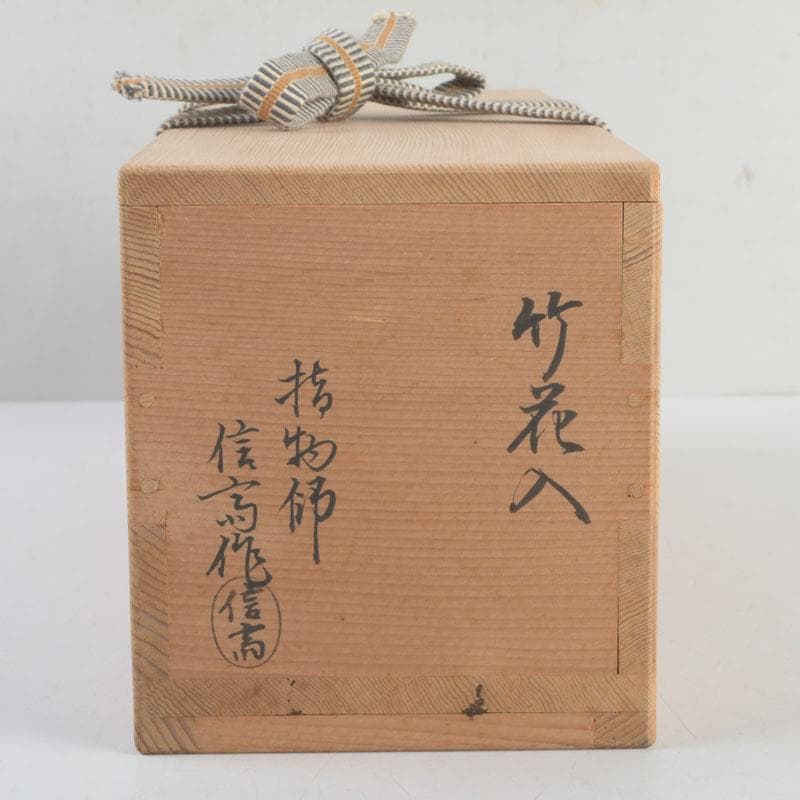 竹花入
指物師
信斎作
信斎